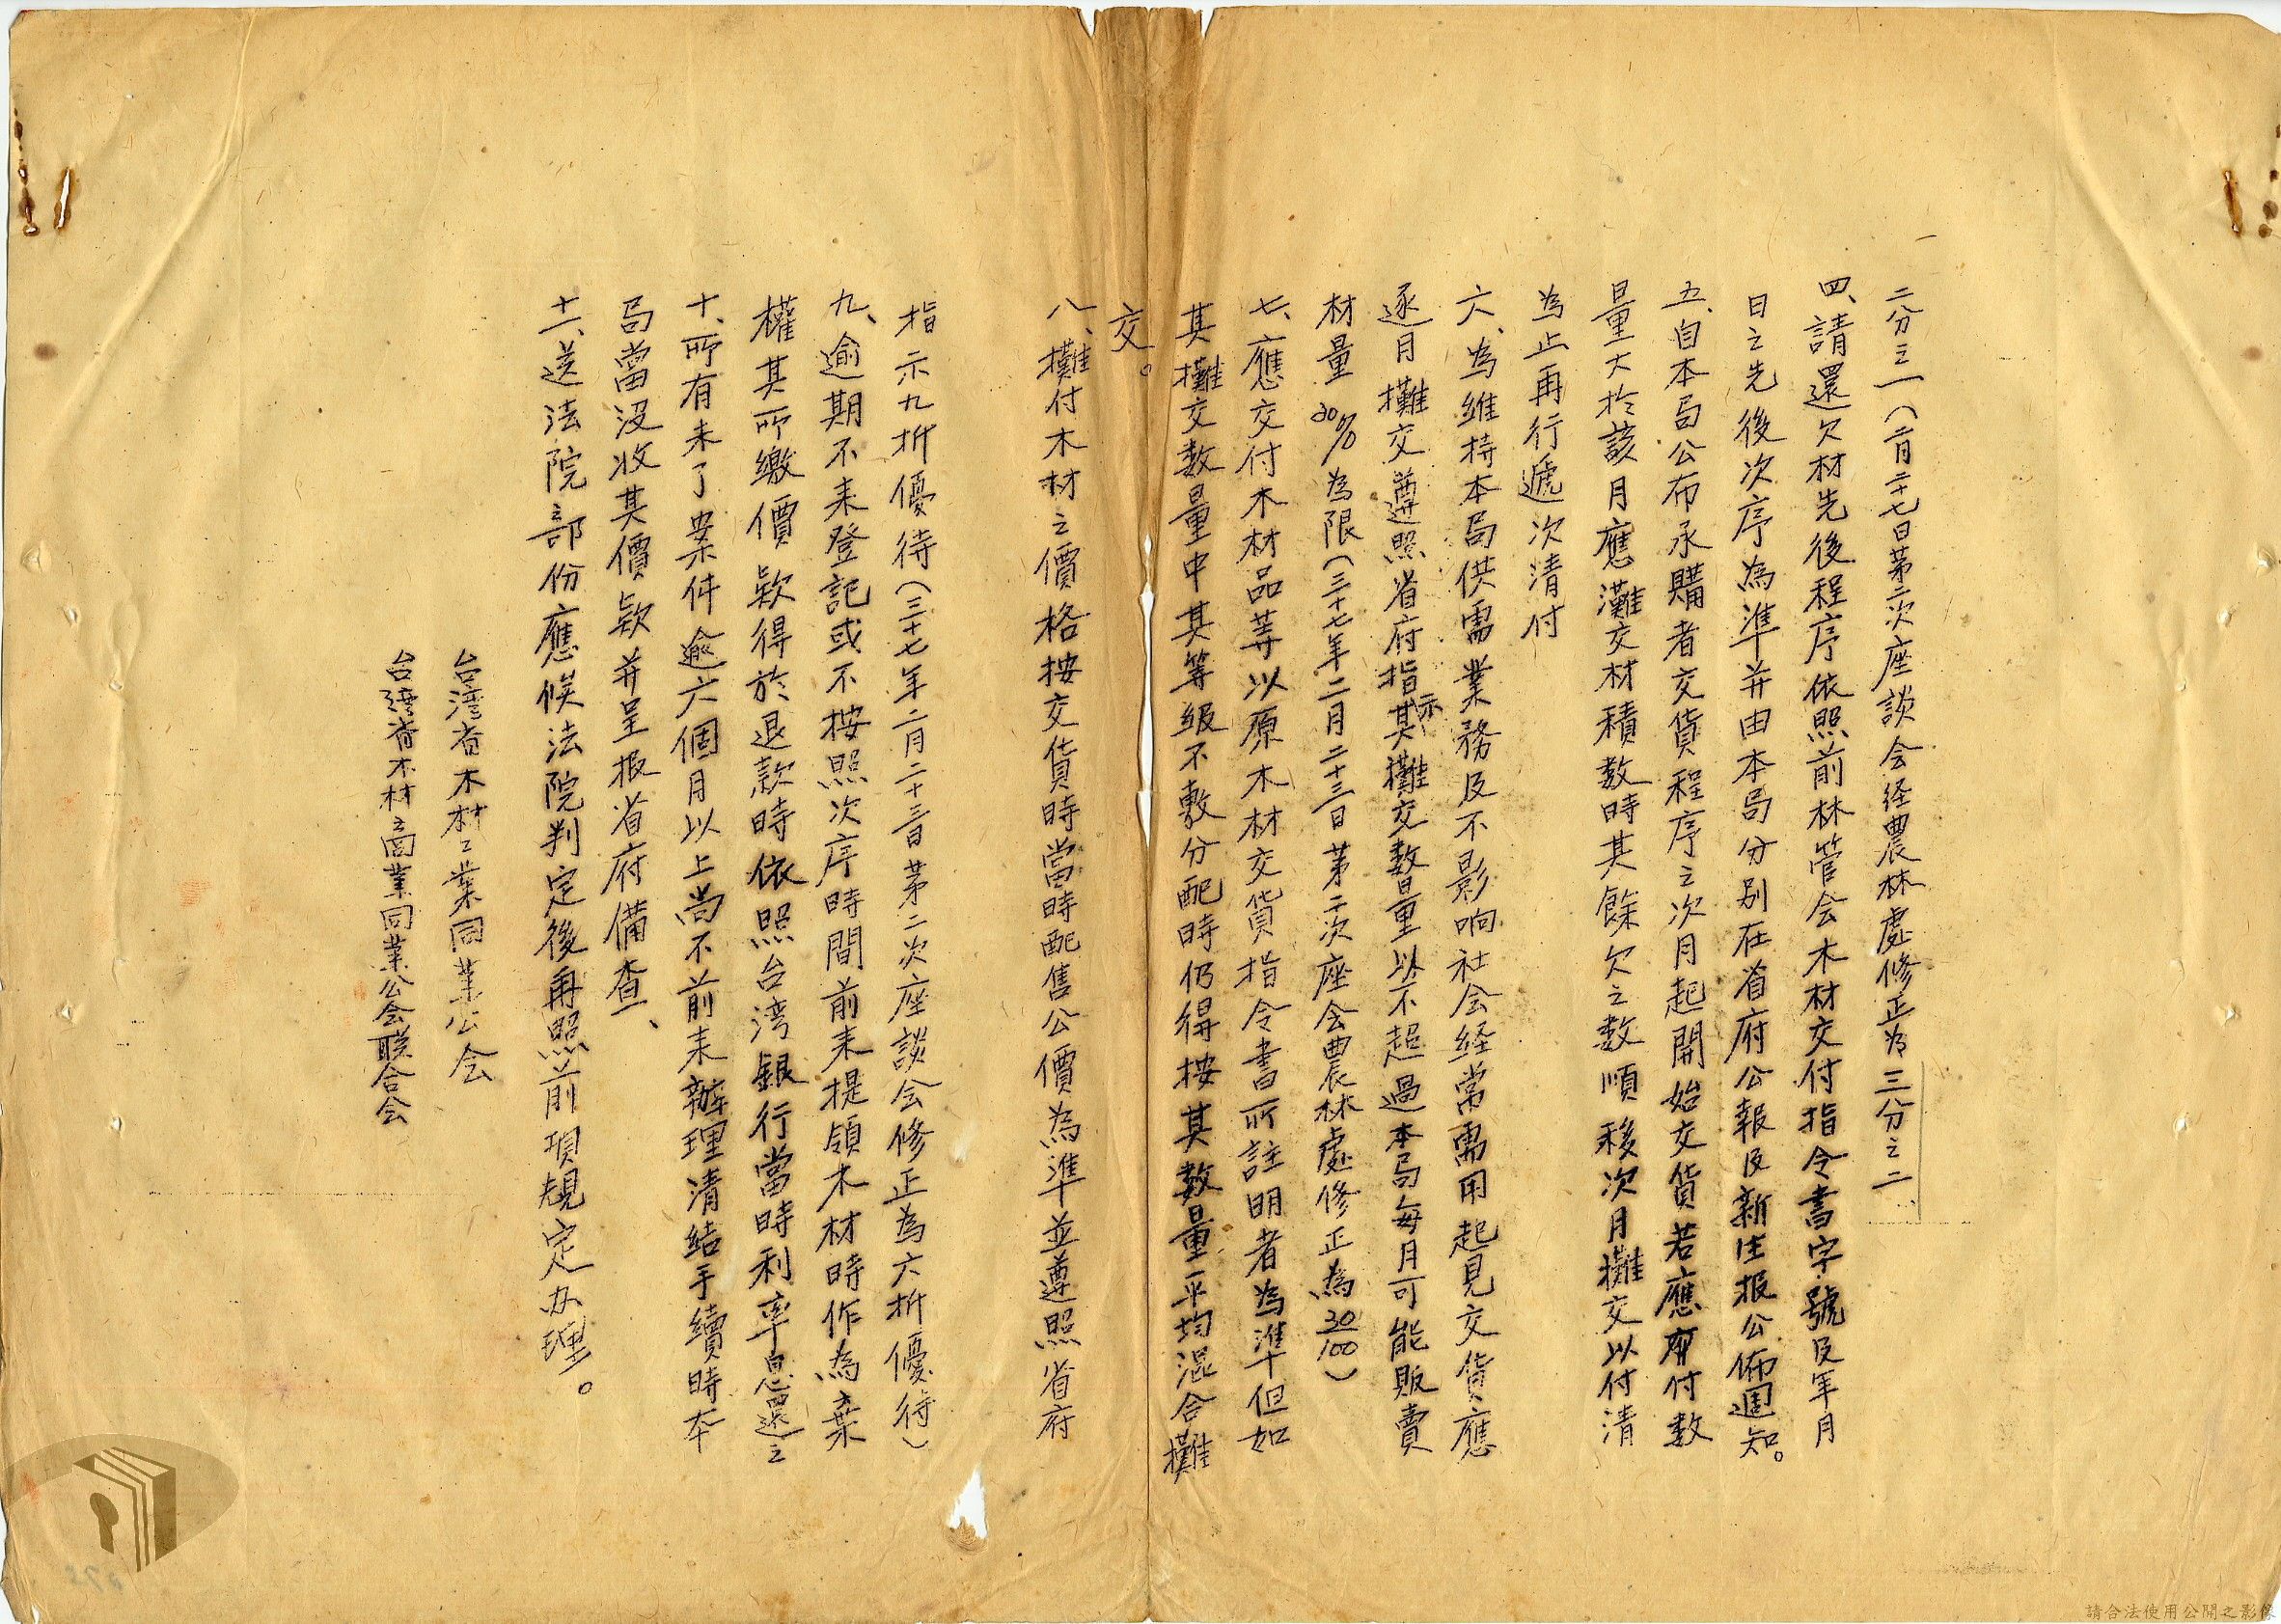 二分之一(二月二十七日第二次座談会経農林處修正為三分之二、
四、請還欠材先後程序依照前林管会木材交付指令書字號及年月
日之先後次序為準并由本局分別在省府公報及新生报公佈週知。
五、自本局公布承購者交貨程序之次月起開始交貨若應付数
量大於該月應灘交材積数時其餘欠之数順移次月攤交以付清
為止再行遞次清付
六、為維持本局供需業務及不影响社会経常需用起見交貨應
逐月攤交遵照省府指示其攤交数量以不超過本局每月可能販賣
材量20%為限(三十七年二月二十三日第二次座会農林處修正為30/100)
七、應交付木材品等以原木材交貨指令書所註明者為準但如
其攤交数量中其等級不敷分配時仍得按其数量平均混合攤
交。
八、攤付木材之價格按交貨時當時配售公價為準並遵照省府
指示九折優待(三十七年二月二十三日第二次座談会修正為六折優待)
九、逾期不来登記或不按照次序時間前来提領木材時作為棄
權其所繳價款得於退款時依照台湾銀行當時利率息還之
十、所有未了案件逾六個月以上尚不前来辦理清結手續時本
局當没收其價款并呈报省府備查、
十一、送法院之部份應候法院判定後再照前項規定办理。
台湾省木材工業同業公会
台湾省木材商業同業公会联合会
請合法使用公開之影像